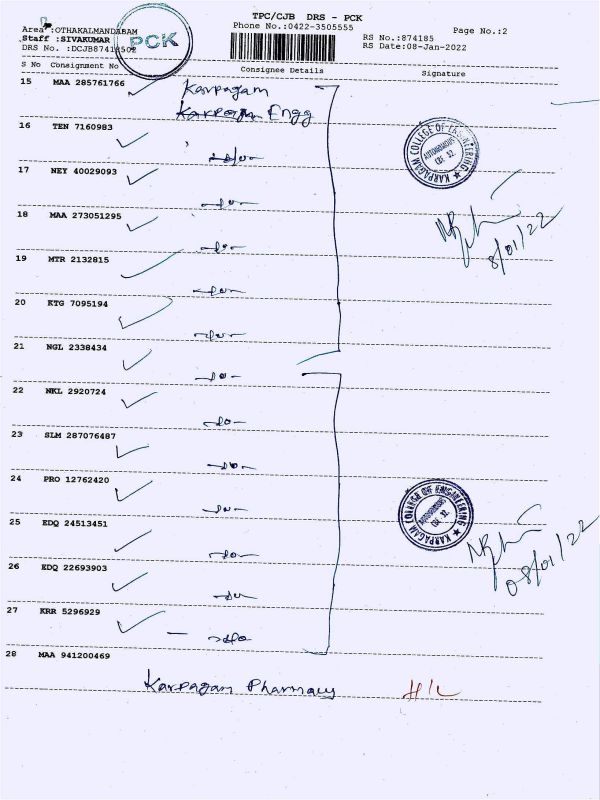 TPC/CJB DRS - PCK
Area :OTHAKALMANDABAM
Phone No.:0422-3505555
Page No.:2
Staff :SIVAKUMAR
RS No.:874185
DRS No. :DCJB87418502
RS Date:08-Jan-2022
PCK
S No Consignment No
Consignee Details
Signature
15 MAA 285761766
Karpagam
Karpagam Engg
16 TEN 7160983
-do-
KARPAGAM COLLEGE OF ENGINEERING
AUTONOMOUS
CBE 32
17 NEY 40029093
-do-
18 MAA 273051295
-do-
8/01/22
19 MTR 2132815
-do-
20 KTG 7095194
-do-
21 NGL 2338434
-do-
22 NKL 2920724
-do-
23 SLM 287076487
-do-
24 PRO 12762420
-do-
KARPAGAM COLLEGE OF ENGINEERING
AUTONOMOUS
CBE 32
25 EDQ 24513451
-do-
08/01/22
26 EDQ 22693903
-do-
27 KRR 5296929
-do-
28 MAA 941200469
Karpagam Pharmacy